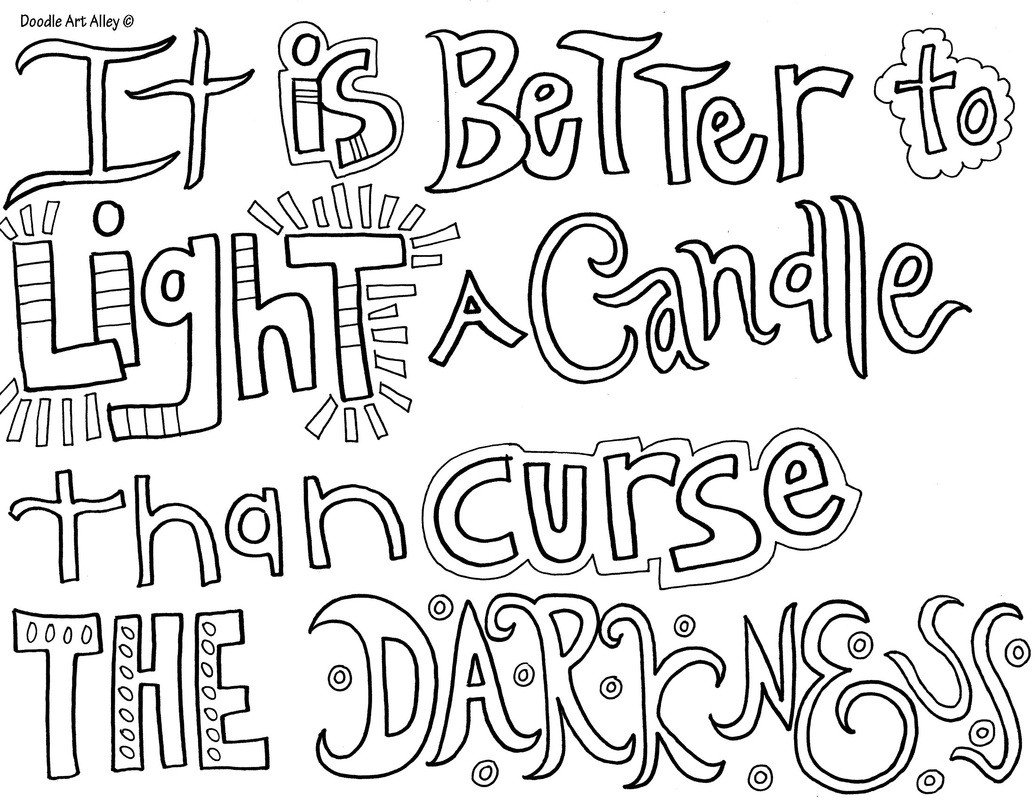 Doodle Art Alley ©
It is BeTTer to
LighT A Candle
than curse
THE DARKNESS